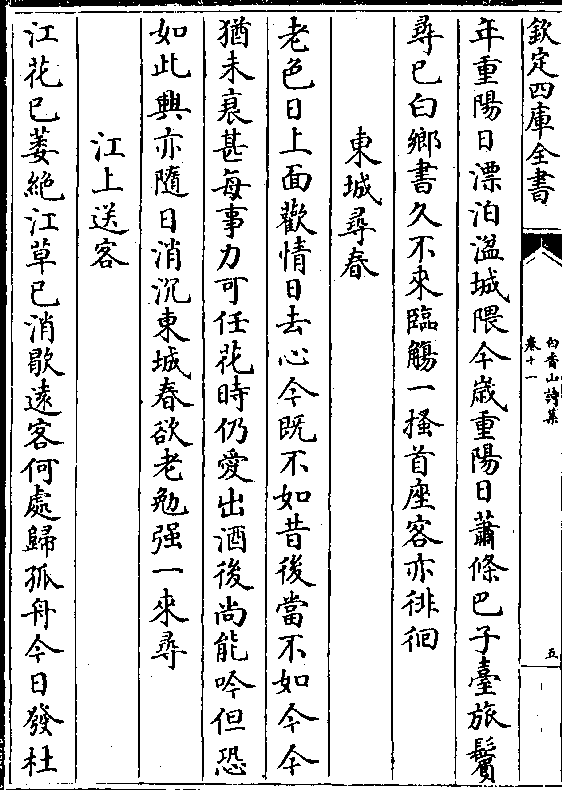 欽定四庫全書
白香山詩集
卷十一
五
年重陽日漂泊湓城隈今歲重陽日蕭條巴子臺旅鬢
尋已白鄉書久不來臨觴一搔首座客亦徘徊
東城尋春
老色日上面歡情日去心今既不如昔後當不如今今
猶未衰甚每事力可任花時仍愛出酒後尚能吟但恐
如此興亦隨日消沉東城春欲老勉强一來尋
江上送客
江花已萎絶江草已消歇遠客何處歸孤舟今日發杜